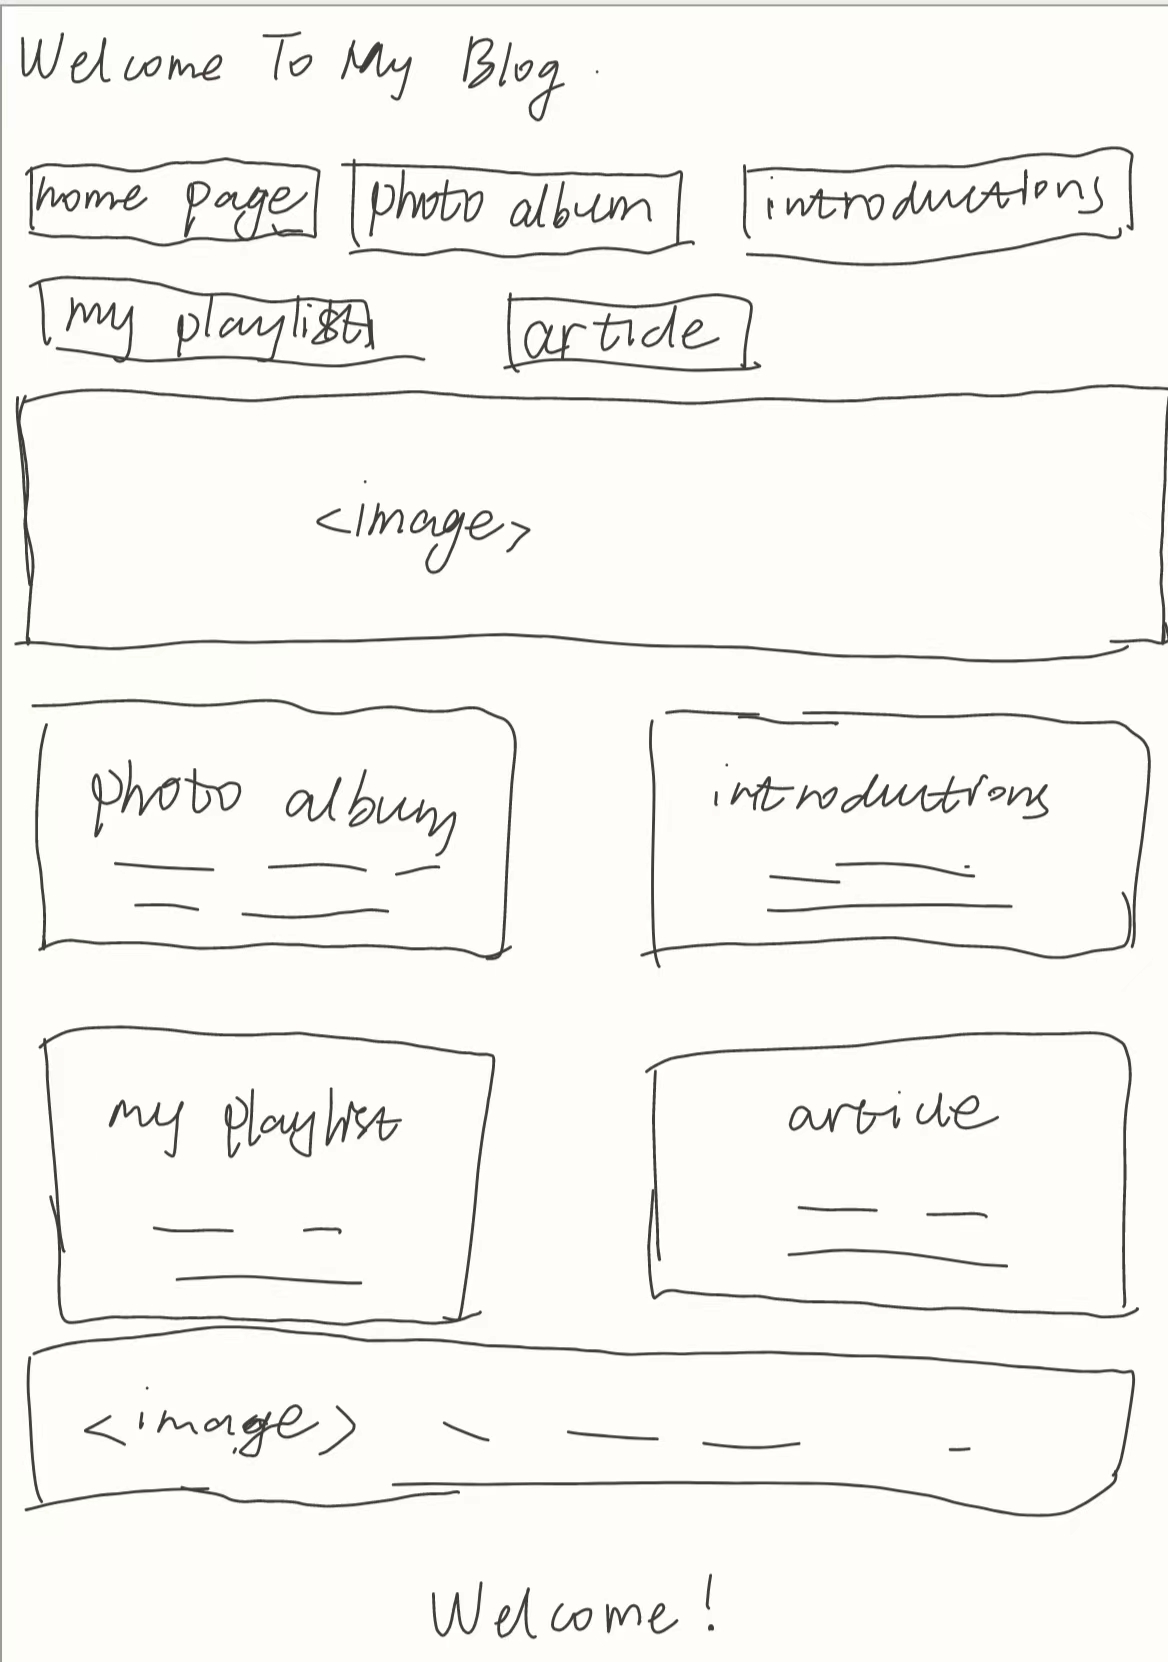 Welcome To My Blog.
home page photo album introductions
my playlist article
<image>
photo album introductions
my playlist article
<image>
Welcome!